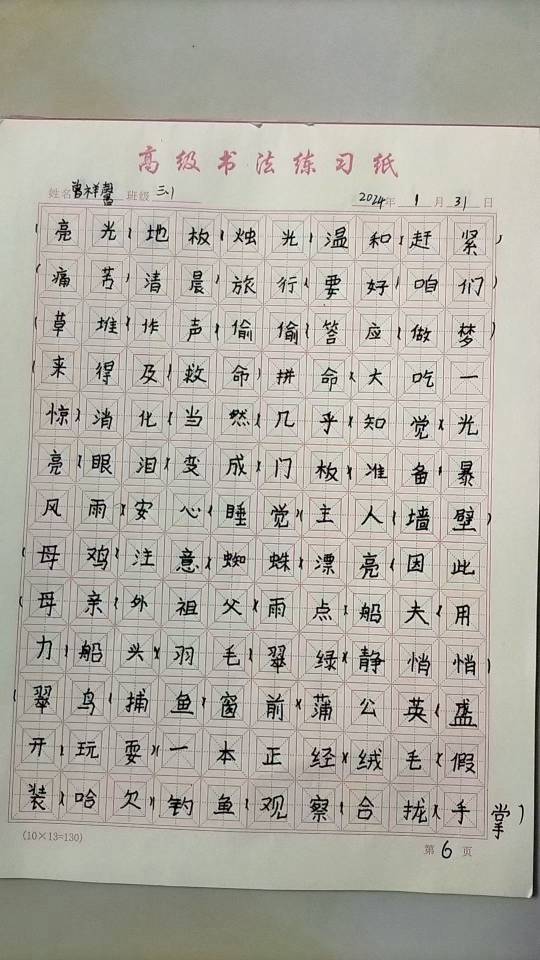 高级书法练习纸
姓名 曾祥馨 班级 三.1 2024年 1月 31日
(亮光)(地板)(烛光)(温和)(赶紧)
(痛苦)(清晨)(旅行)(要好)(咱们)
(草堆)(作声)(偷偷)(答应)(做梦)
(来得及)(救命)(拼命)(大吃一
惊)(消化)(当然)(几乎)(知觉)(光
亮)(眼泪)(变成)(门板)(准备)(暴
风雨)(安心)(睡觉)(主人)(墙壁)
(母鸡)(注意)(蜘蛛)(漂亮)(因此)
(母亲)(外祖父)(雨点)(船夫)(用
力)(船头)(羽毛)(翠绿)(静悄悄)
(翠鸟)(捕鱼)(窗前)(蒲公英)(盛
开)(玩耍)(一本正经)(绒毛)(假
装)(哈欠)(钓鱼)(观察)(合拢)(手掌)
(10×13=130) 第6页